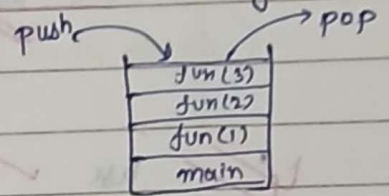 push pop
fun(3)
fun(2)
fun(1)
main